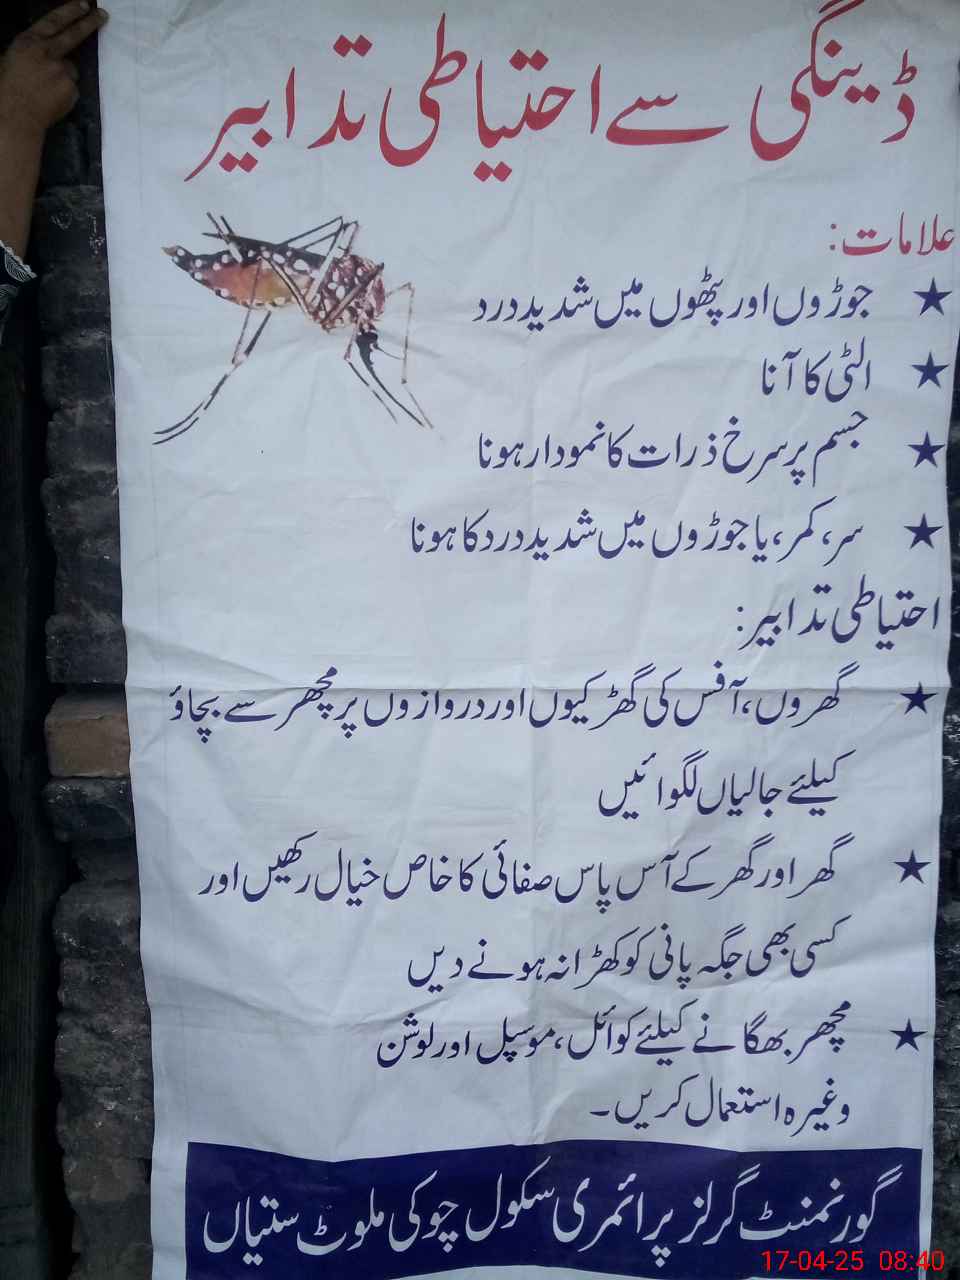 ڈینگی سے احتیاطی تدابیر
علامات:
★ جوڑوں اور پٹھوں میں شدید درد
★ الٹی کا آنا
★ جسم پر سرخ ذرات کا نمودار ہونا
★ سر، کمر، یا جوڑوں میں شدید درد کا ہونا
احتیاطی تدابیر:
★ گھروں، آفس کی گھڑکیوں اور دروازوں پر مچھر سے بچاؤ
کیلئے جالیاں لگوائیں
★ گھر اور گھر کے آس پاس صفائی کا خاص خیال رکھیں اور
کسی بھی جگہ پانی کو کھڑا نہ ہونے دیں
★ مچھر بھگانے کیلئے کوائل، موسپل اور لوشن
وغیرہ استعمال کریں۔
گورنمنٹ گرلز پرائمری سکول چوکی ملوٹ ستیاں
17-04-25 08:40